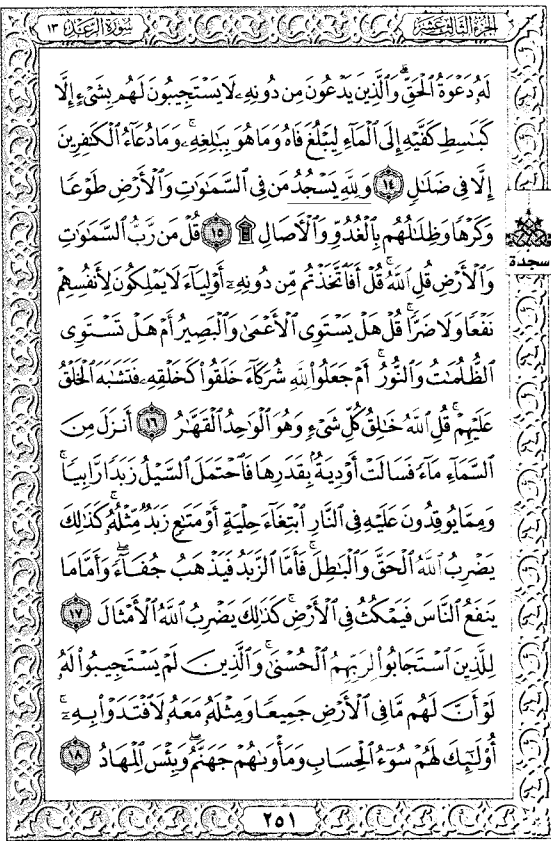 الجزء الثالث عشر
سورة الرعد ١٣
لَهُۥ دَعْوَةُ ٱلْحَقِّ ۖ وَٱلَّذِينَ يَدْعُونَ مِن دُونِهِۦ لَا يَسْتَجِيبُونَ لَهُم بِشَىْءٍ إِلَّا
كَبَـٰسِطِ كَفَّيْهِ إِلَى ٱلْمَآءِ لِيَبْلُغَ فَاهُ وَمَا هُوَ بِبَـٰلِغِهِۦ ۚ وَمَا دُعَآءُ ٱلْكَـٰفِرِينَ
إِلَّا فِى ضَلَـٰلٍ ١٤ وَلِلَّهِ يَسْجُدُ مَن فِى ٱلسَّمَـٰوَٰتِ وَٱلْأَرْضِ طَوْعًا
وَكَرْهًا وَظِلَـٰلُهُم بِٱلْغُدُوِّ وَٱلْـَٔاصَالِ ۩ ١٥ قُلْ مَن رَّبُّ ٱلسَّمَـٰوَٰتِ
سجدة
وَٱلْأَرْضِ قُلِ ٱللَّهُ ۚ قُلْ أَفَٱتَّخَذْتُم مِّن دُونِهِۦٓ أَوْلِيَآءَ لَا يَمْلِكُونَ لِأَنفُسِهِمْ
نَفْعًا وَلَا ضَرًّا ۚ قُلْ هَلْ يَسْتَوِى ٱلْأَعْمَىٰ وَٱلْبَصِيرُ أَمْ هَلْ تَسْتَوِى
ٱلظُّلُمَـٰتُ وَٱلنُّورُ ۗ أَمْ جَعَلُوا۟ لِلَّهِ شُرَكَآءَ خَلَقُوا۟ كَخَلْقِهِۦ فَتَشَـٰبَهَ ٱلْخَلْقُ
عَلَيْهِمْ ۚ قُلِ ٱللَّهُ خَـٰلِقُ كُلِّ شَىْءٍ وَهُوَ ٱلْوَٰحِدُ ٱلْقَهَّـٰرُ ١٦ أَنزَلَ مِنَ
ٱلسَّمَآءِ مَآءً فَسَالَتْ أَوْدِيَةٌۢ بِقَدَرِهَا فَٱحْتَمَلَ ٱلسَّيْلُ زَبَدًا رَّابِيًا ۚ
وَمِمَّا يُوقِدُونَ عَلَيْهِ فِى ٱلنَّارِ ٱبْتِغَآءَ حِلْيَةٍ أَوْ مَتَـٰعٍ زَبَدٌ مِّثْلُهُۥ ۚ كَذَٰلِكَ
يَضْرِبُ ٱللَّهُ ٱلْحَقَّ وَٱلْبَـٰطِلَ ۚ فَأَمَّا ٱلزَّبَدُ فَيَذْهَبُ جُفَآءً ۖ وَأَمَّا مَا
يَنفَعُ ٱلنَّاسَ فَيَمْكُثُ فِى ٱلْأَرْضِ ۚ كَذَٰلِكَ يَضْرِبُ ٱللَّهُ ٱلْأَمْثَالَ ١٧
لِلَّذِينَ ٱسْتَجَابُوا۟ لِرَبِّهِمُ ٱلْحُسْنَىٰ ۚ وَٱلَّذِينَ لَمْ يَسْتَجِيبُوا۟ لَهُۥ
لَوْ أَنَّ لَهُم مَّا فِى ٱلْأَرْضِ جَمِيعًا وَمِثْلَهُۥ مَعَهُۥ لَٱفْتَدَوْا۟ بِهِۦٓ ۚ
أُو۟لَـٰٓئِكَ لَهُمْ سُوٓءُ ٱلْحِسَابِ وَمَأْوَىٰهُمْ جَهَنَّمُ ۖ وَبِئْسَ ٱلْمِهَادُ ١٨
٢٥١